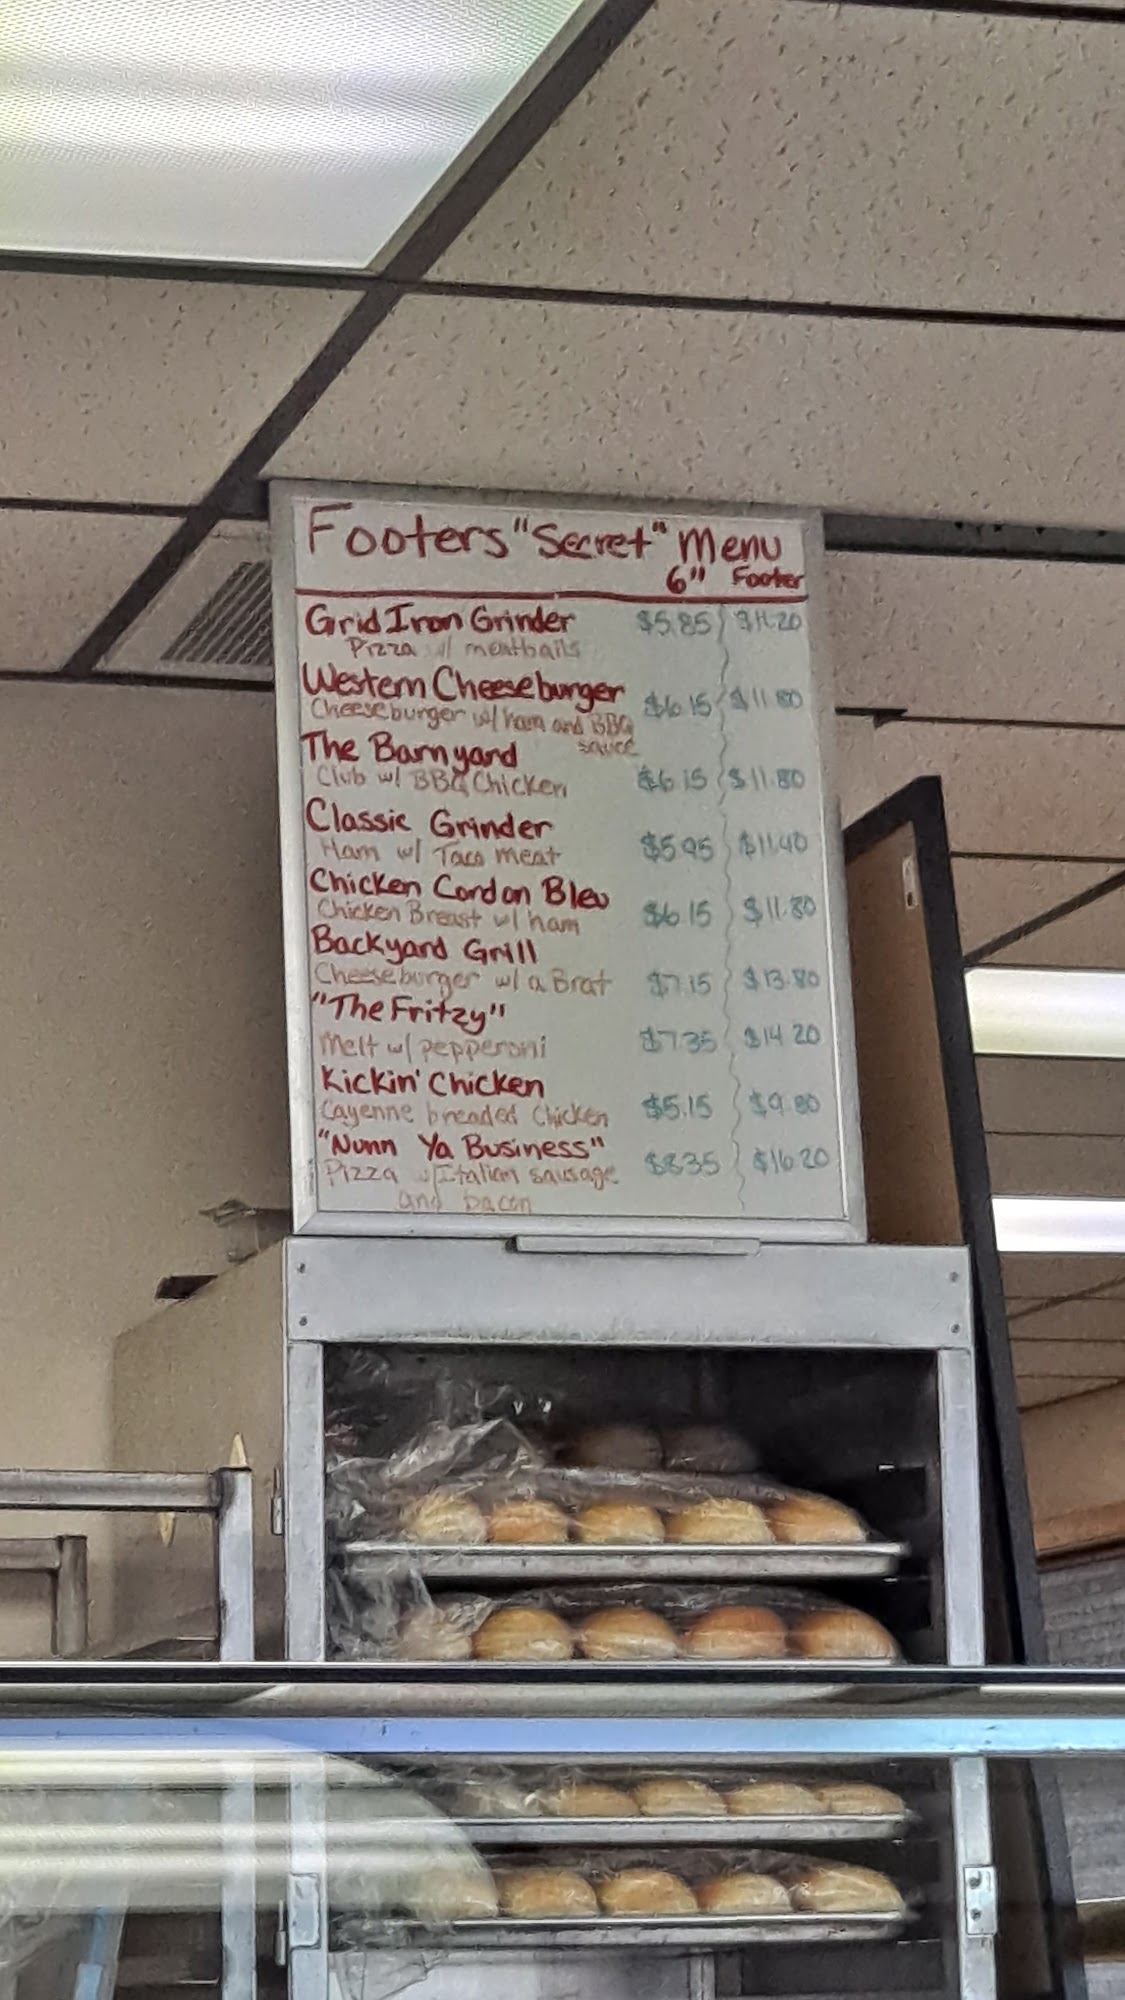 Footers "Secret" Menu
6" Footer
Grid Iron Grinder $5.85 $11.20
Pizza w/ meatballs
Western Cheeseburger $6.15 $11.80
Cheeseburger w/ ham and BBQ
sauce
The Barnyard
Club w/ BBQ Chicken $6.15 $11.80
Classic Grinder
Ham w/ Taco meat $5.95 $11.40
Chicken Cordon Bleu
Chicken Breast w/ ham $6.15 $11.80
Backyard Grill
Cheeseburger w/ a Brat $7.15 $13.80
"The Fritzy"
Melt w/ pepperoni $7.35 $14.20
Kickin' Chicken
Cayenne breaded Chicken $5.15 $9.80
"Nunn Ya Business"
Pizza w/ Italian sausage $8.35 $16.20
and bacon